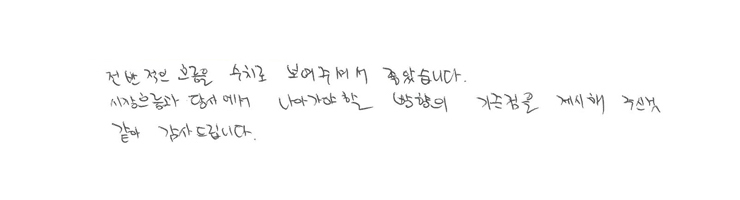 전반적인 흐름을 수치로 보여주셔서 좋았습니다.
시장흐름과 당사에서 나아가야 할 방향의 기준점을 제시해 주신것
같아 감사드립니다.